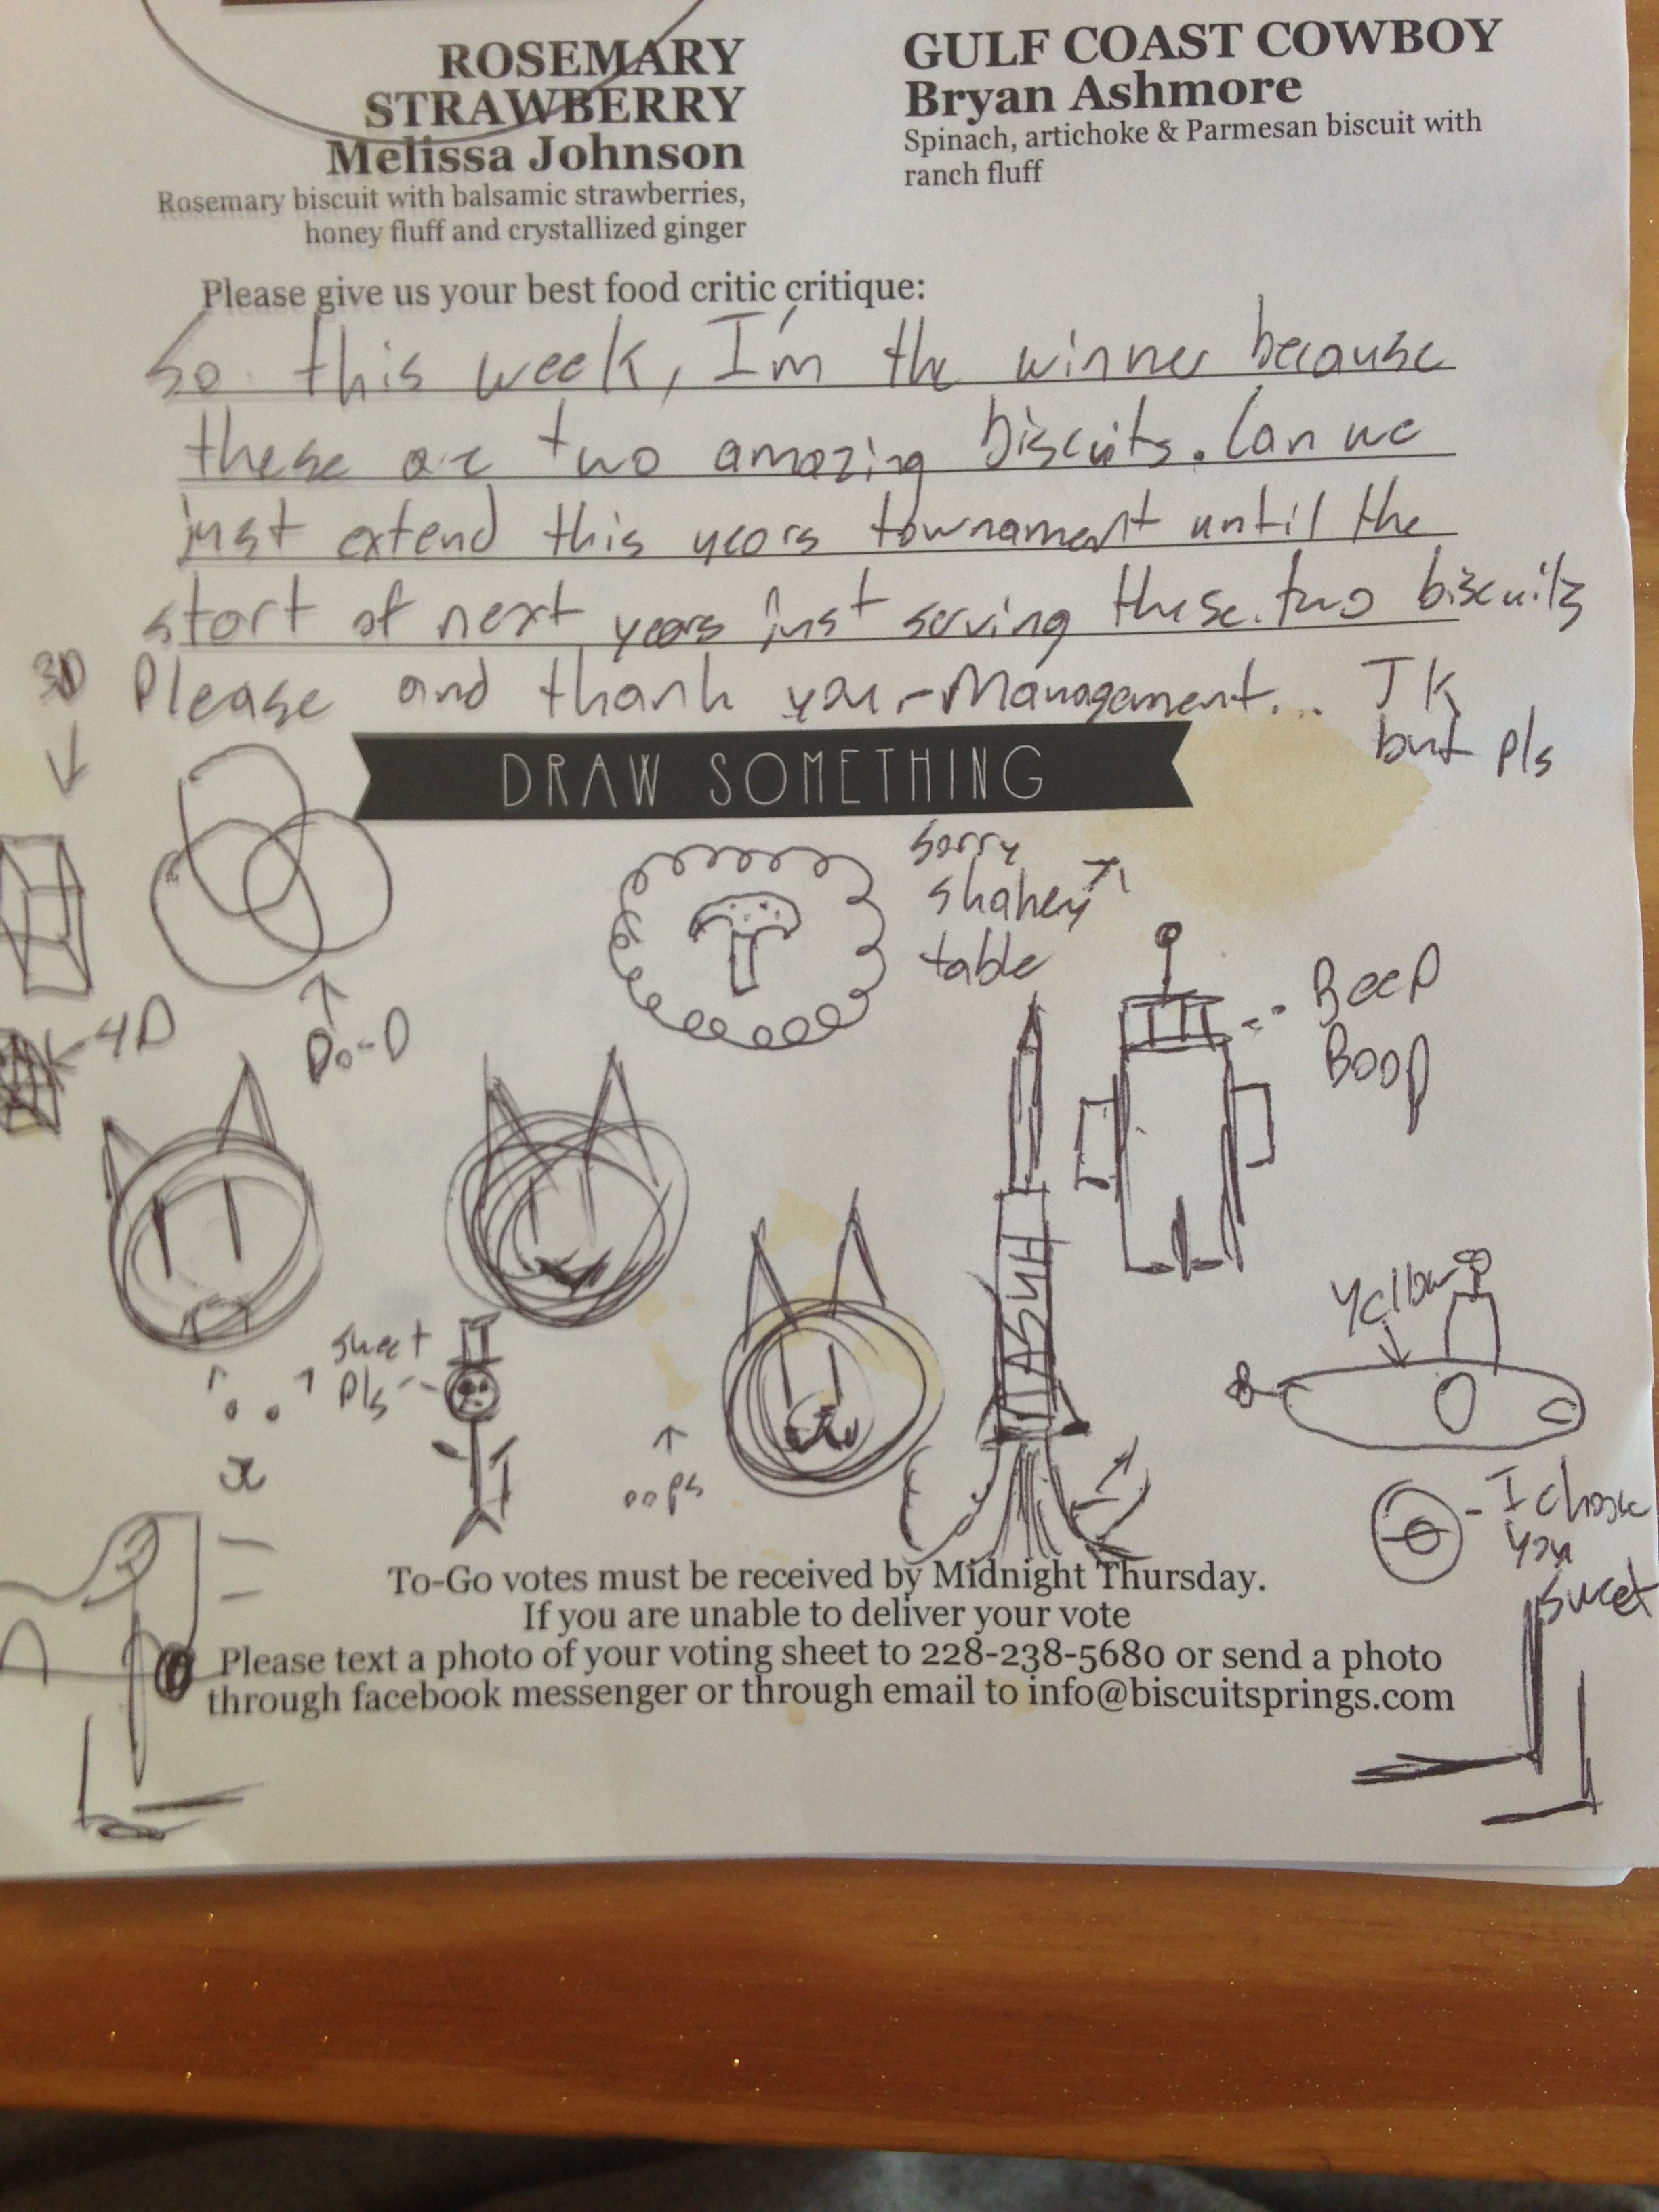 ROSEMARY
STRAWBERRY
Melissa Johnson
Rosemary biscuit with balsamic strawberries,
honey fluff and crystallized ginger
GULF COAST COWBOY
Bryan Ashmore
Spinach, artichoke & Parmesan biscuit with
ranch fluff
Please give us your best food critic critique:
So this week, I'm the winner because
these are two amazing biscuits. Can we
just extend this years tournament until the
start of next years just serving these two biscuits
Please and thank you - Management... JK
but pls
3D
DRAW SOMETHING
Sorry
shakey
table
4D
Do-D
Beep
Boop
Yellow
sweet
pls
oops
I chose
you
sweet
To-Go votes must be received by Midnight Thursday.
If you are unable to deliver your vote
Please text a photo of your voting sheet to 228-238-5680 or send a photo
through facebook messenger or through email to info@biscuitsprings.com